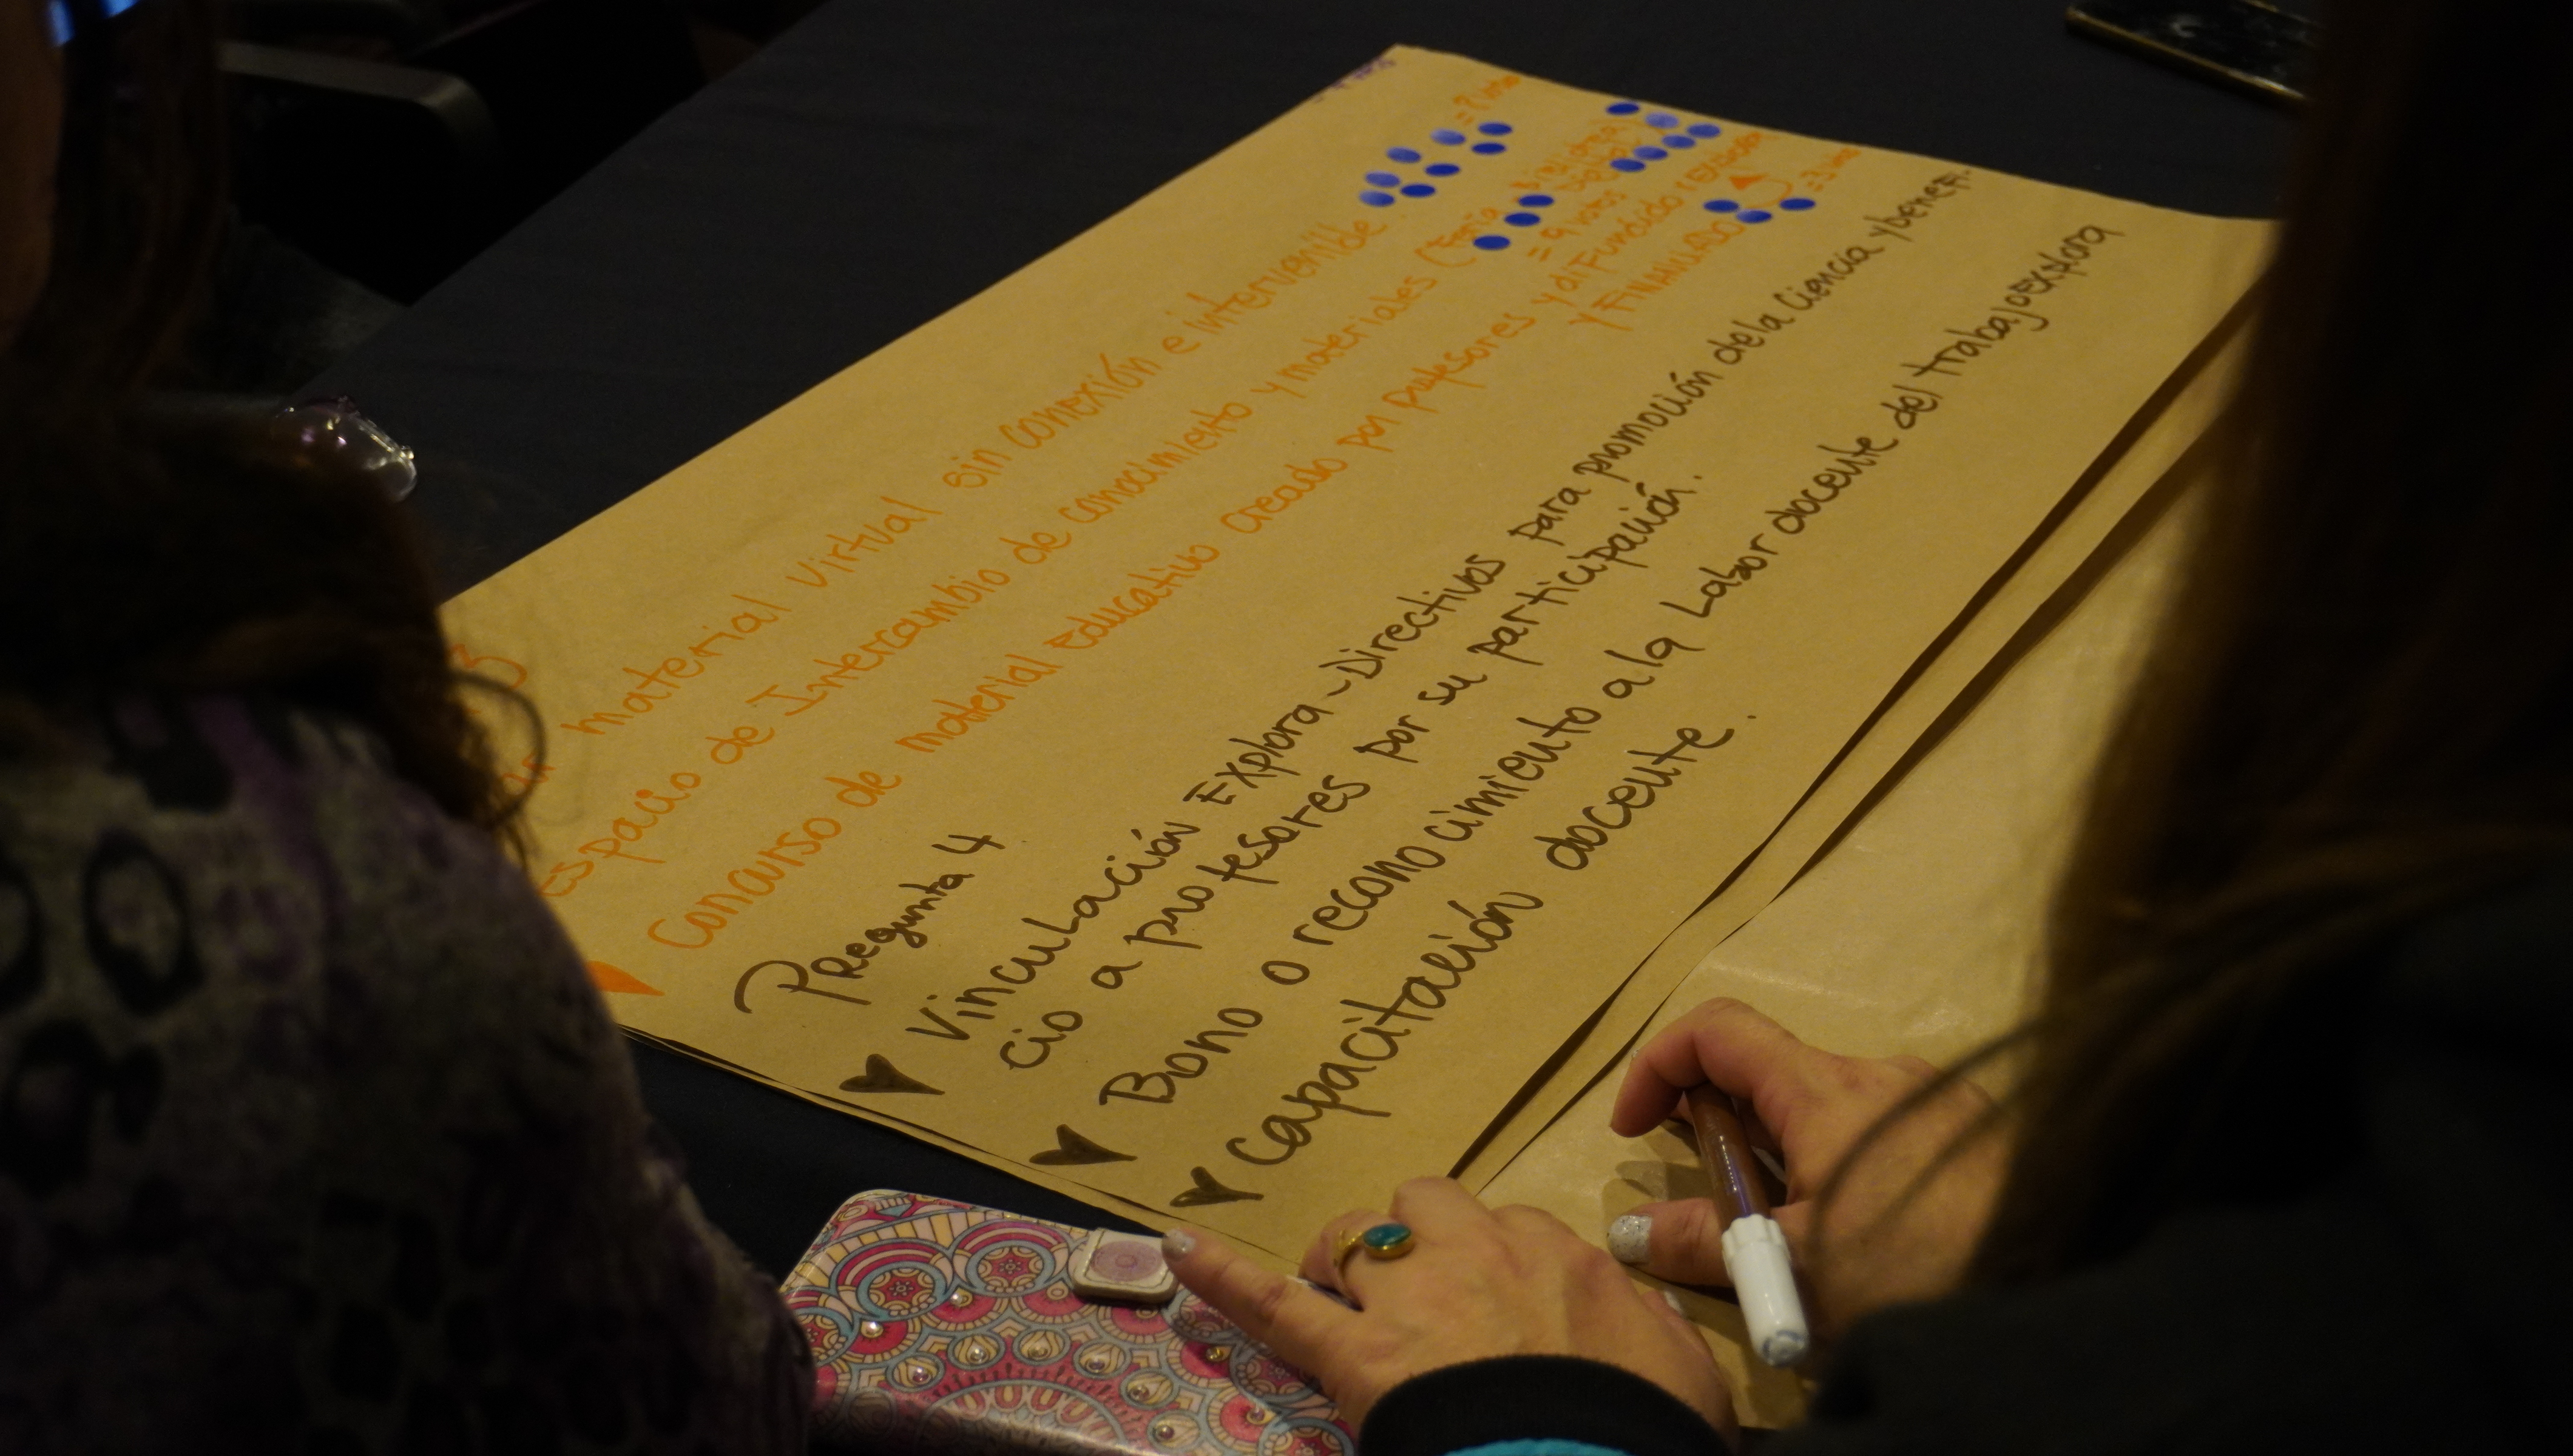 3
material virtual sin conexión e intervenible = 7 votos
espacio de Intercambio de conocimiento y materiales (Feria
= 9 votos
Concurso de material educativo creado por profesores y difundido
y FINANCIADO = 3 votos
Pregunta 4
Vinculación Explora - Directivos para promoción de la Ciencia y benefi-
cio a profesores por su participación.
Bono o reconocimiento a la Labor docente del trabajo explora
Capacitación docente.